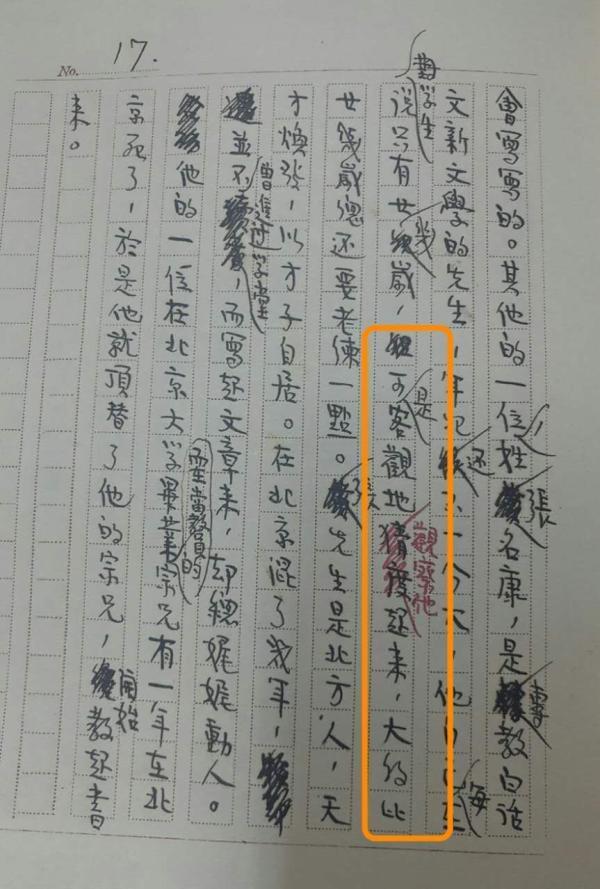 No. 17.
會寫寫的。其他的一位姓張名康，是專教白話
文新文學的先生，年紀還不一今大，他自己在每
對學生說只有廿幾歲，是可客觀地觀察他猜度起來，大約比
廿幾歲總還要老練一點。張先生是北方人，天
才煥發，以才子自居。在北京混了幾年，
並不曾進过学堂，而寫起文章來，却總娓娓動人。
他的一位在北京大学畢業要當教員的宗兄有一年在北
京死了，於是他就頂替了他的宗兄，開始教起書
來。